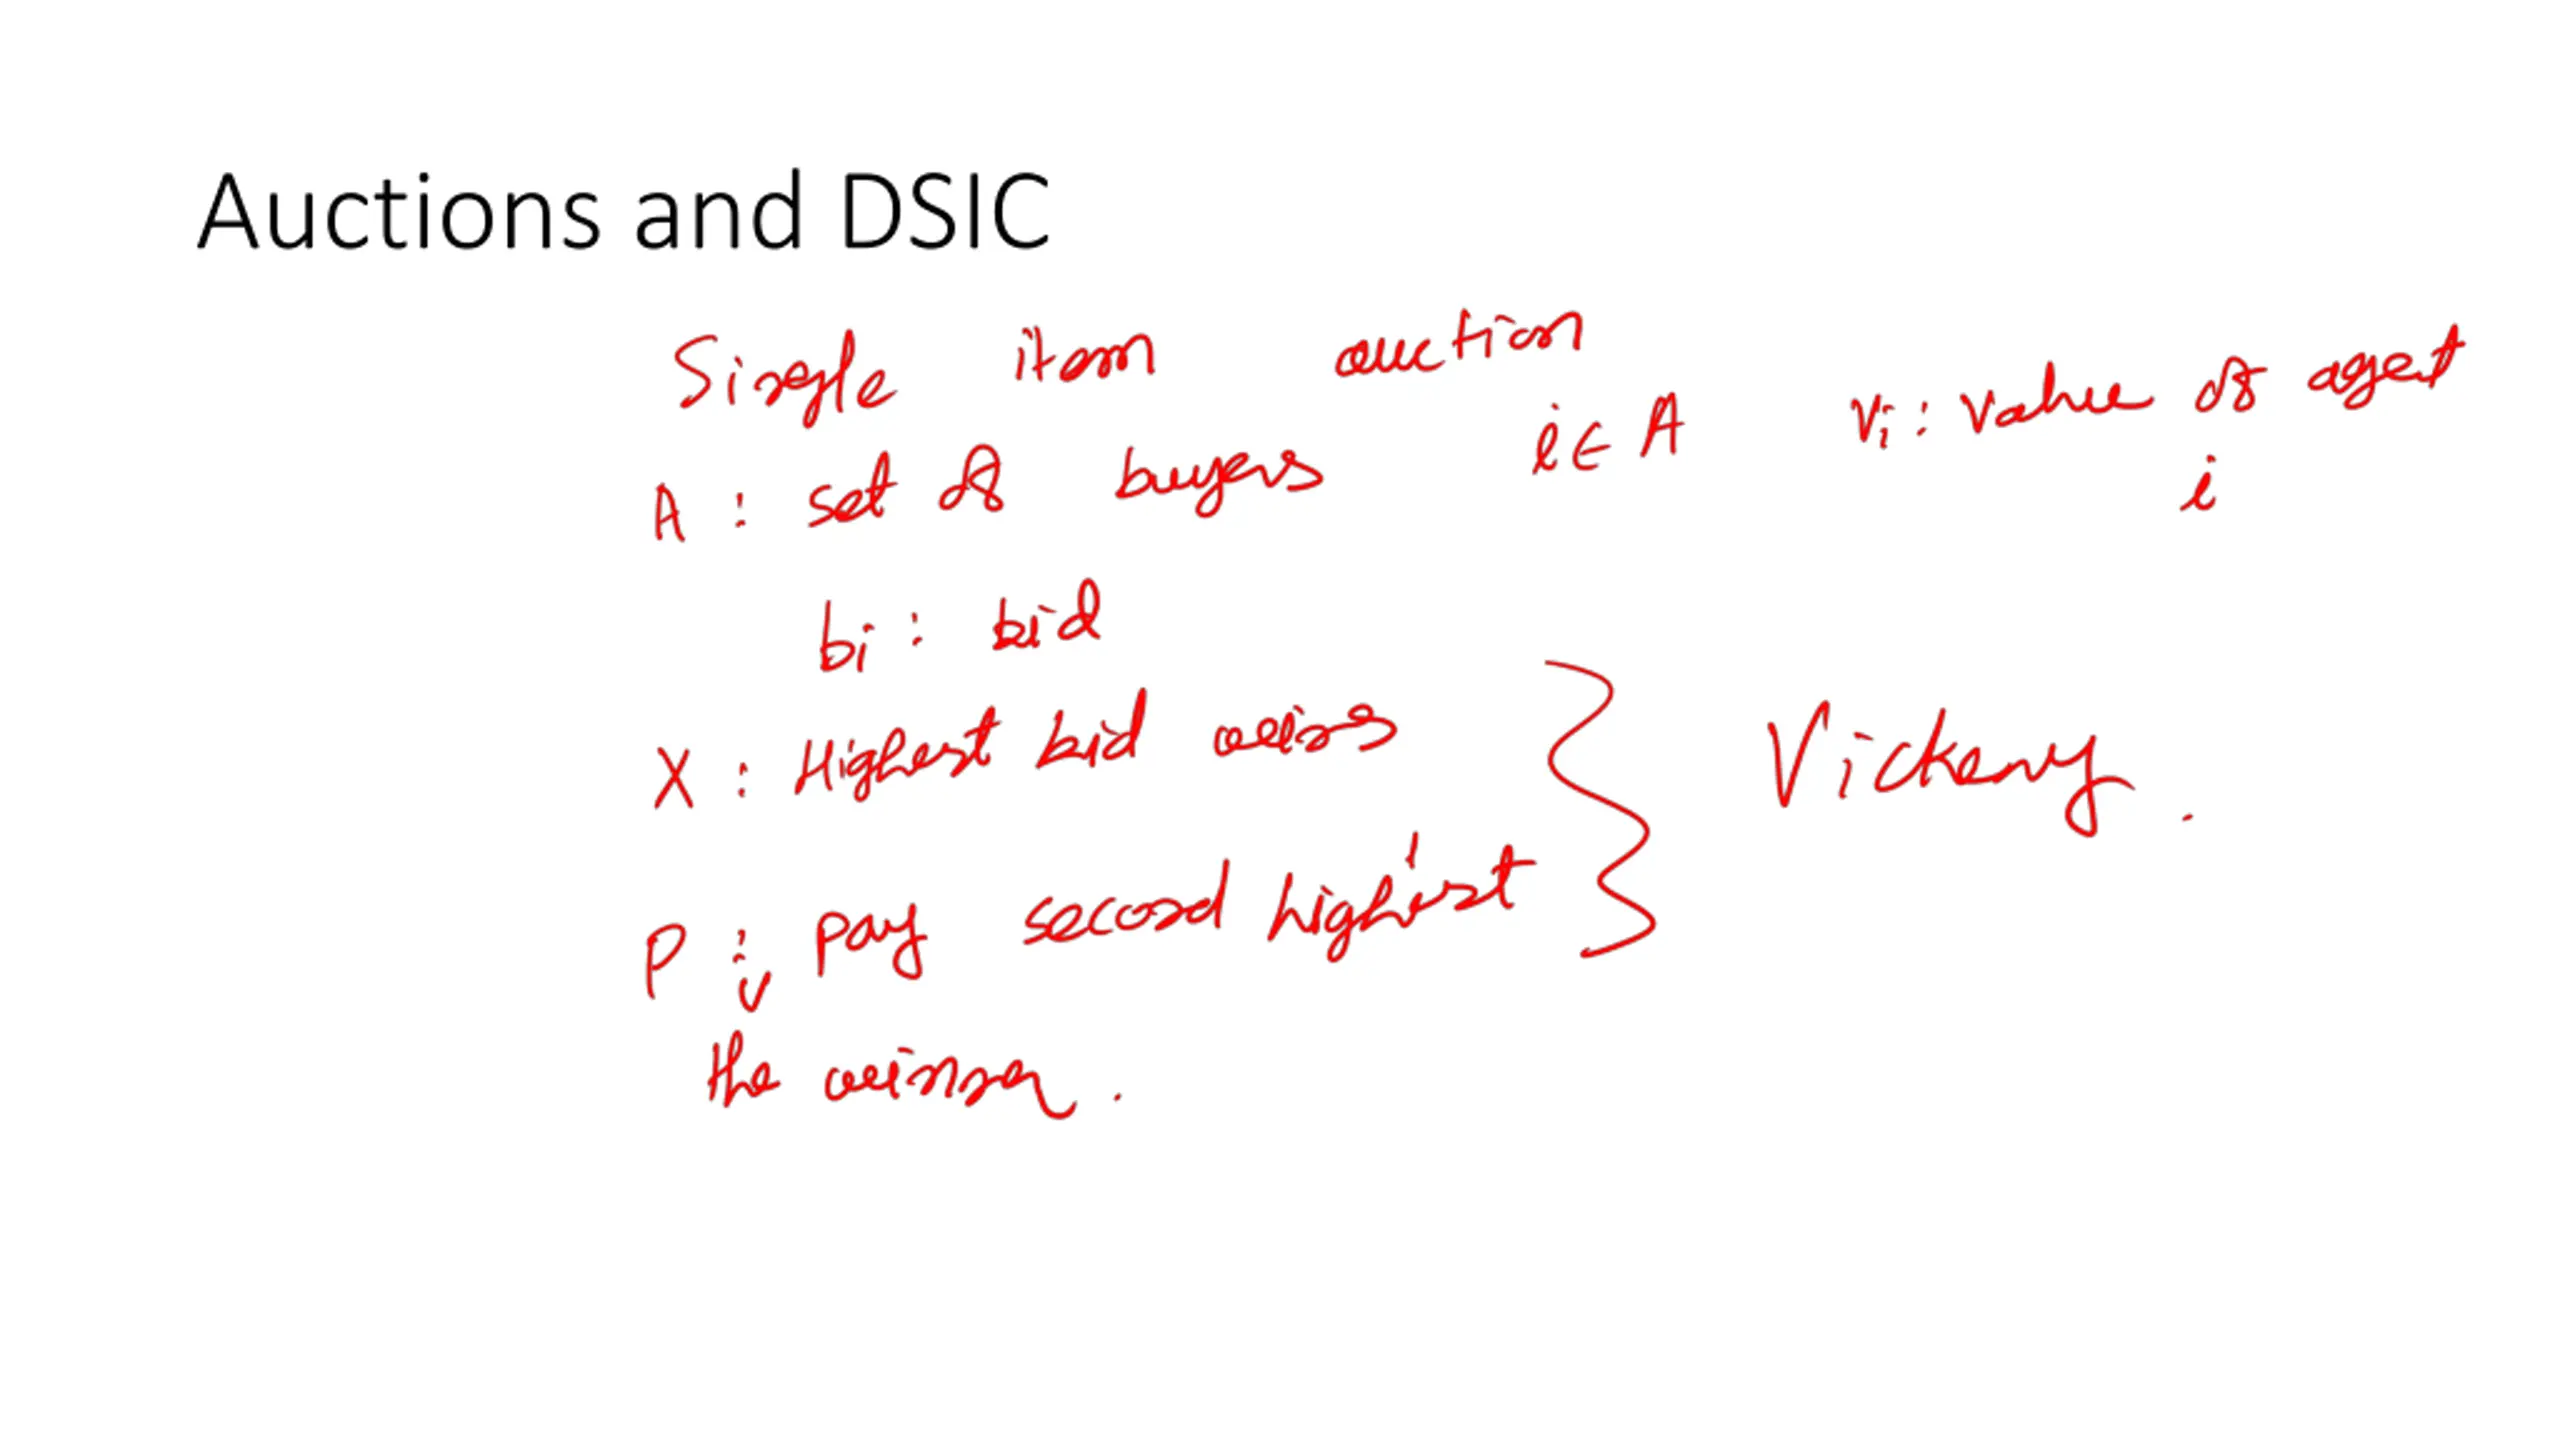 Auctions and DSIC
Single item auction
A : set of buyers i ∈ A vi : value of agent
i
bi : bid
X : Highest bid wins
Vickery.
P : pay second highest
the winner.